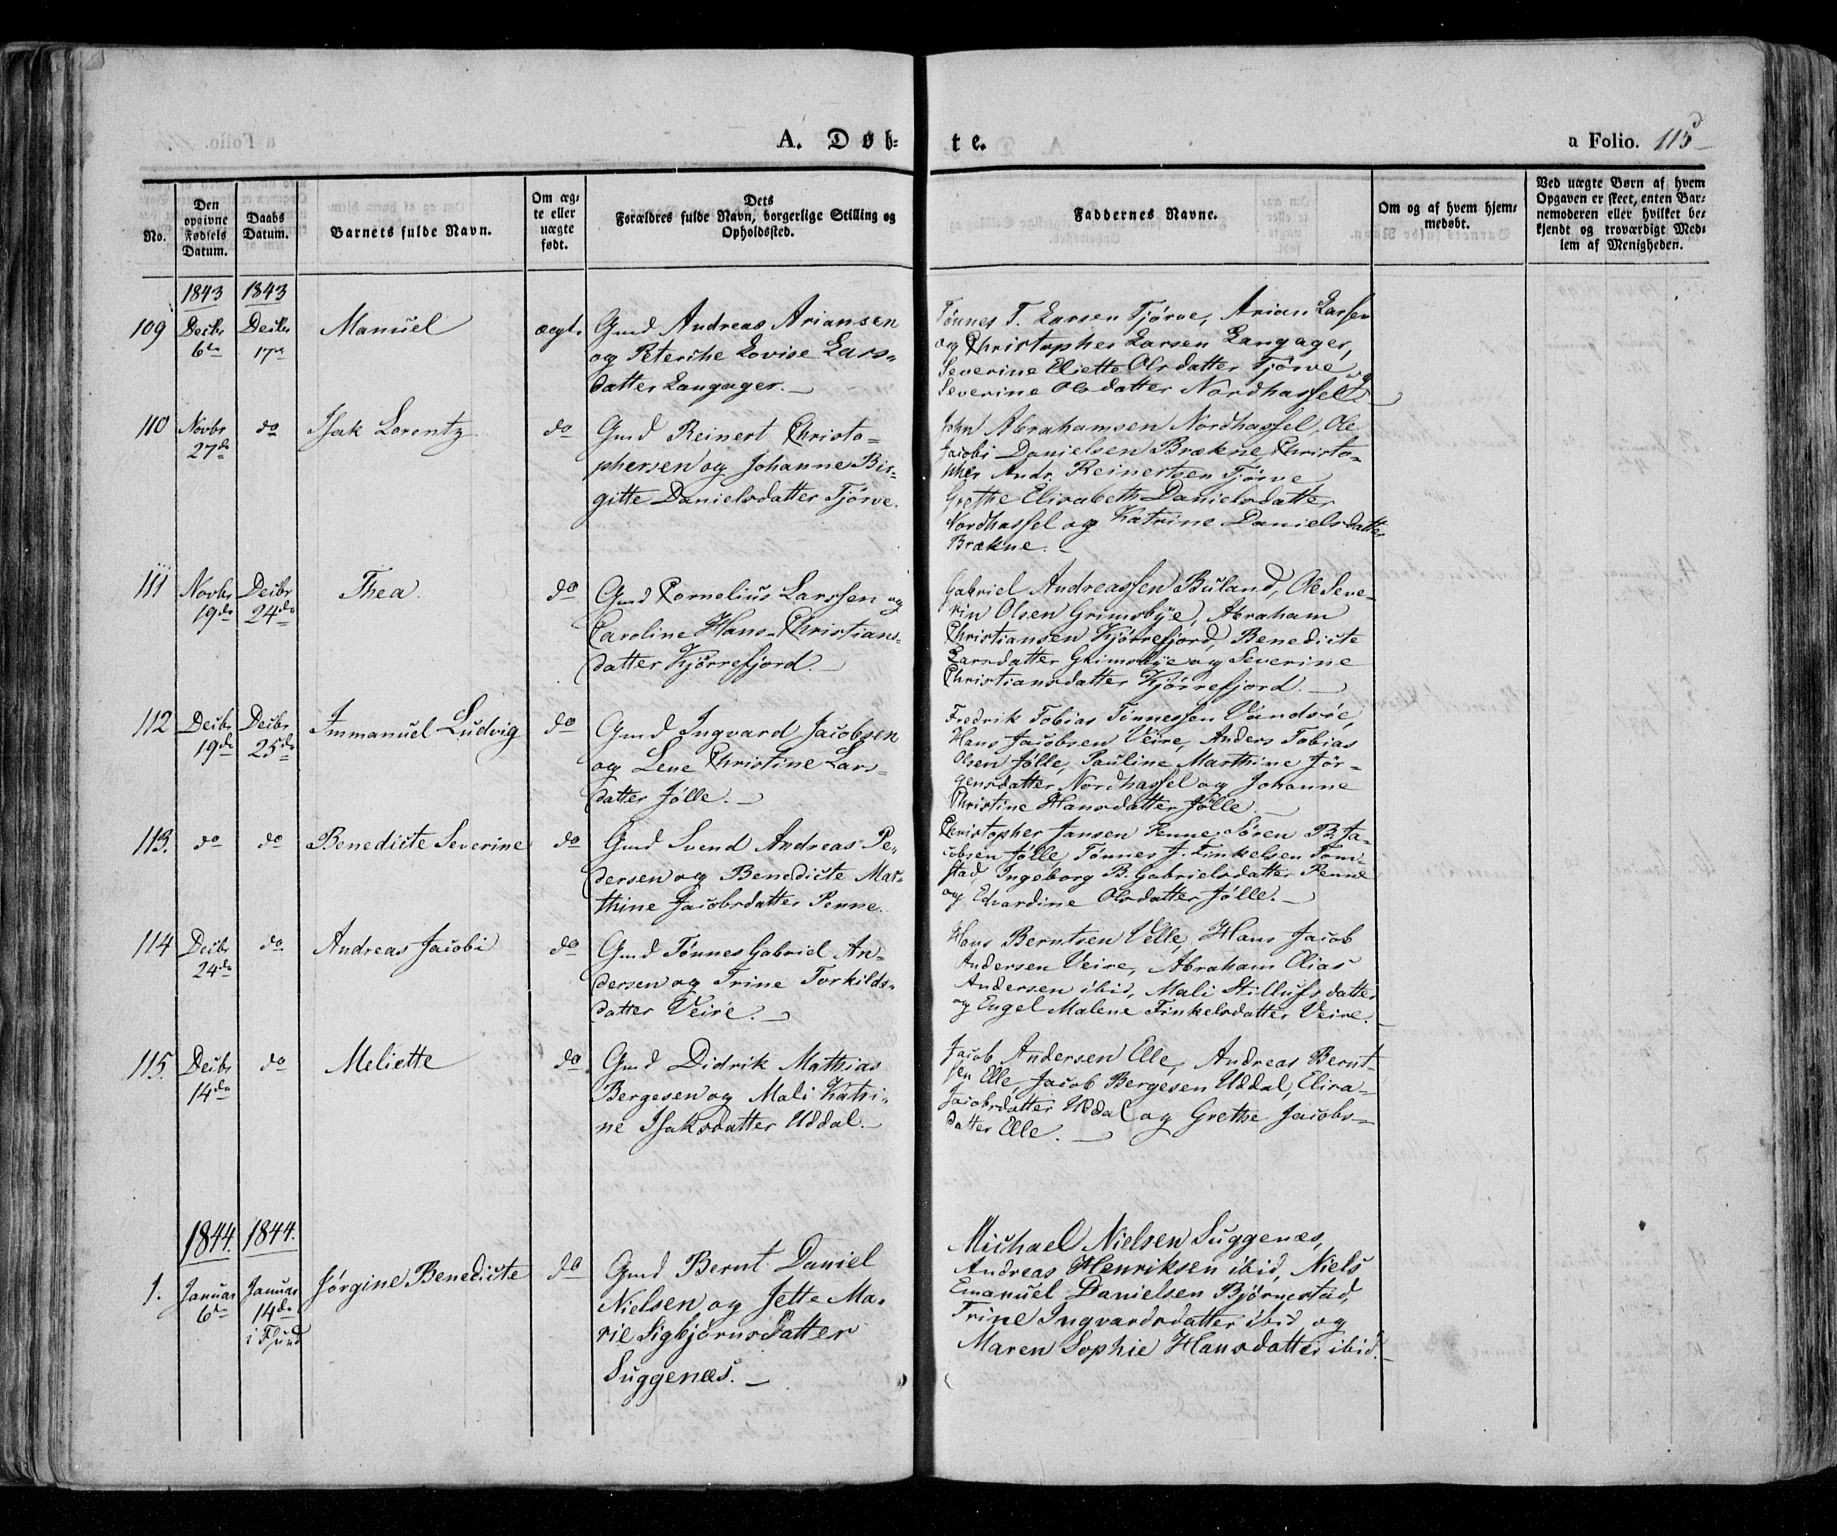 A. Døb- te. a Folio. 115
No.
Den opgivne Fødsels Datum.
Daabs Datum.
Barnets fulde Navn.
Om ægte eller uægte født.
Dets Forældres fulde Navn, borgerlige Stilling og Opholdssted.
Faddernes Navne.
Om og af hvem hjemmedøbt.
Ved uægte Børn af hvem Opgaven er skeet, enten Barnemoderen eller hvilket bekjendt og troværdigt Medlem af Menigheden.
1843 1843
109 Decbr 6te Decbr 17de Manuel ægt.
Gmd Andreas Ariansen
og Peterike Lovise Lars-
datter Langager.
Tønnes T. Larsen Tjørve, Arian Larsen
og Christopher Larsen Langager,
Severine Eliette Olsdatter Tjørve og
Severine Olsdatter Nordhassel.
110 Novbr 27de do Isak Lorentz do
Gmd Reinert Christo-
phersen og Johanne Bir-
gitte Danielsdatter Tjørve.
John Abrahamsen Nordhassel, Ole
Jacobi Danielsen Brækne, Christo-
pher Andr. Reinertsen Tjørve
Grethe Elisabeth Danielsdatter
Nordhassel og Katrine Danielsdatter
Brækne.
111 Novbr 19de Decbr 24de Thea. do
Gmd Cornelius Larssen og
Caroline Hans-Christians-
datter Kjørrefjord.
Gabriel Andreassen Buland, Ole Seve-
rin Olsen Grimsbye, Abraham
Christiansen Kjørrefjord, Benedicte
Larsdatter Grimsbye og Severine
Christiansdatter Kjørrefjord.
112 Decbr 19de Decbr 25de Immanuel Ludvig do
Gmd Ingvard Jacobsen
og Lene Christine Lars-
datter Jølle.
Fredrik Tobias Tønnessen Vandsøe,
Hans Jacobsen Veire, Anders Tobias
Olsen Jølle, Pauline Marthine Jør-
gensdatter Nordhassel og Johanne
Christine Hansdatter Jølle
113. do do Benedicte Severine do
Gmd Svend Andreas Pe-
dersen og Benedicte Mar-
thine Jacobsdatter Penne.
Christopher Jansen Penne, Sören B. Ja-
cobsen Jølle, Tønnes J. Finkelsen Tom-
stad, Ingeborg B. Gabrielsdatter Penne
og Edvardine Olsdatter Jølle.
114 Decbr 24de do Andreas Jacobi do
Gmd Tønnes Gabriel An-
dersen og Trine Torkilds-
datter Veire.
Hans Berntsen Velle, Hans Jacob
Andersen Veire, Abraham Elias
Andersen ibid, Mali Stillufsdatter
og Engel Malene Finkelsdatter Veire.
115. Decbr 14de do Meliette do
Gmd Didrik Mathias
Bergesen og Mali Katri-
ne Isaksdatter Uddal.
Jacob Andersen Elle, Andreas Bernt-
sen Elle, Jacob Bergesen Uddal, Elisa-
Jacobsdatter Uddal og Grethe Jacobs-
datter Elle.
1844. 1844.
1. Januar 6te Januar 14de i Jørgine Benedicte do
Gmd Bernt Daniel
Nielsen og Jette Ma-
rie Sigbjørnsdatter
Suggenæs.
Michael Nielsen Suggenæs,
Andreas Henriksen ibid, Niels
Emanuel Danielsen Bjørnestad,
Trine Ingvardsdatter ibid og
Maren Sophie Hansdatter ibid.